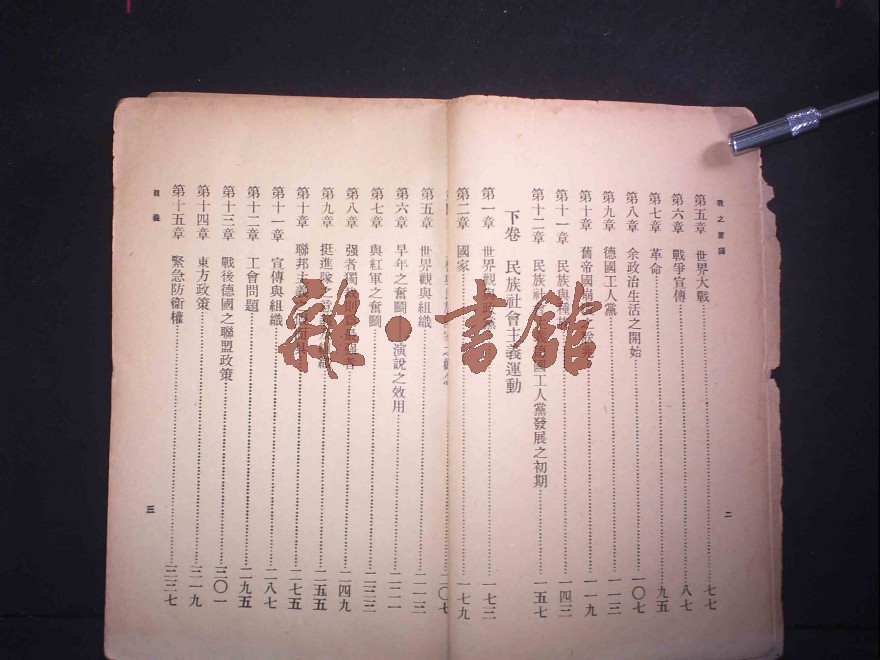 我之奮鬪
第五章　世界大戰……七七
第六章　戰爭宣傳……八七
第七章　革命……九五
第八章　余政治生活之開始……一〇七
第九章　德國工人黨……一一三
第十章　舊帝國……一一九
第十一章　民族與種……一四三
第十二章　民族社會……國工人黨發展之初期……一五七
二
下卷　民族社會主義運動
第一章　世界觀與政黨……一七三
第二章　國家……一七九
二〇七
第五章　世界觀與組織……二一三
第六章　早年之奮鬪——演說之效用……二二一
第七章　與紅軍之奮鬪……二三三
第八章　强者獨……二四九
第九章　挺進隊之……二五五
第十章　聯邦主義……二七五
第十一章　宣傳與組織……二八七
第十二章　工會問題……二九五
第十三章　戰後德國之聯盟政策……三〇一
第十四章　東方政策……三一九
第十五章　緊急防衛權……三三七
三
雜·書館